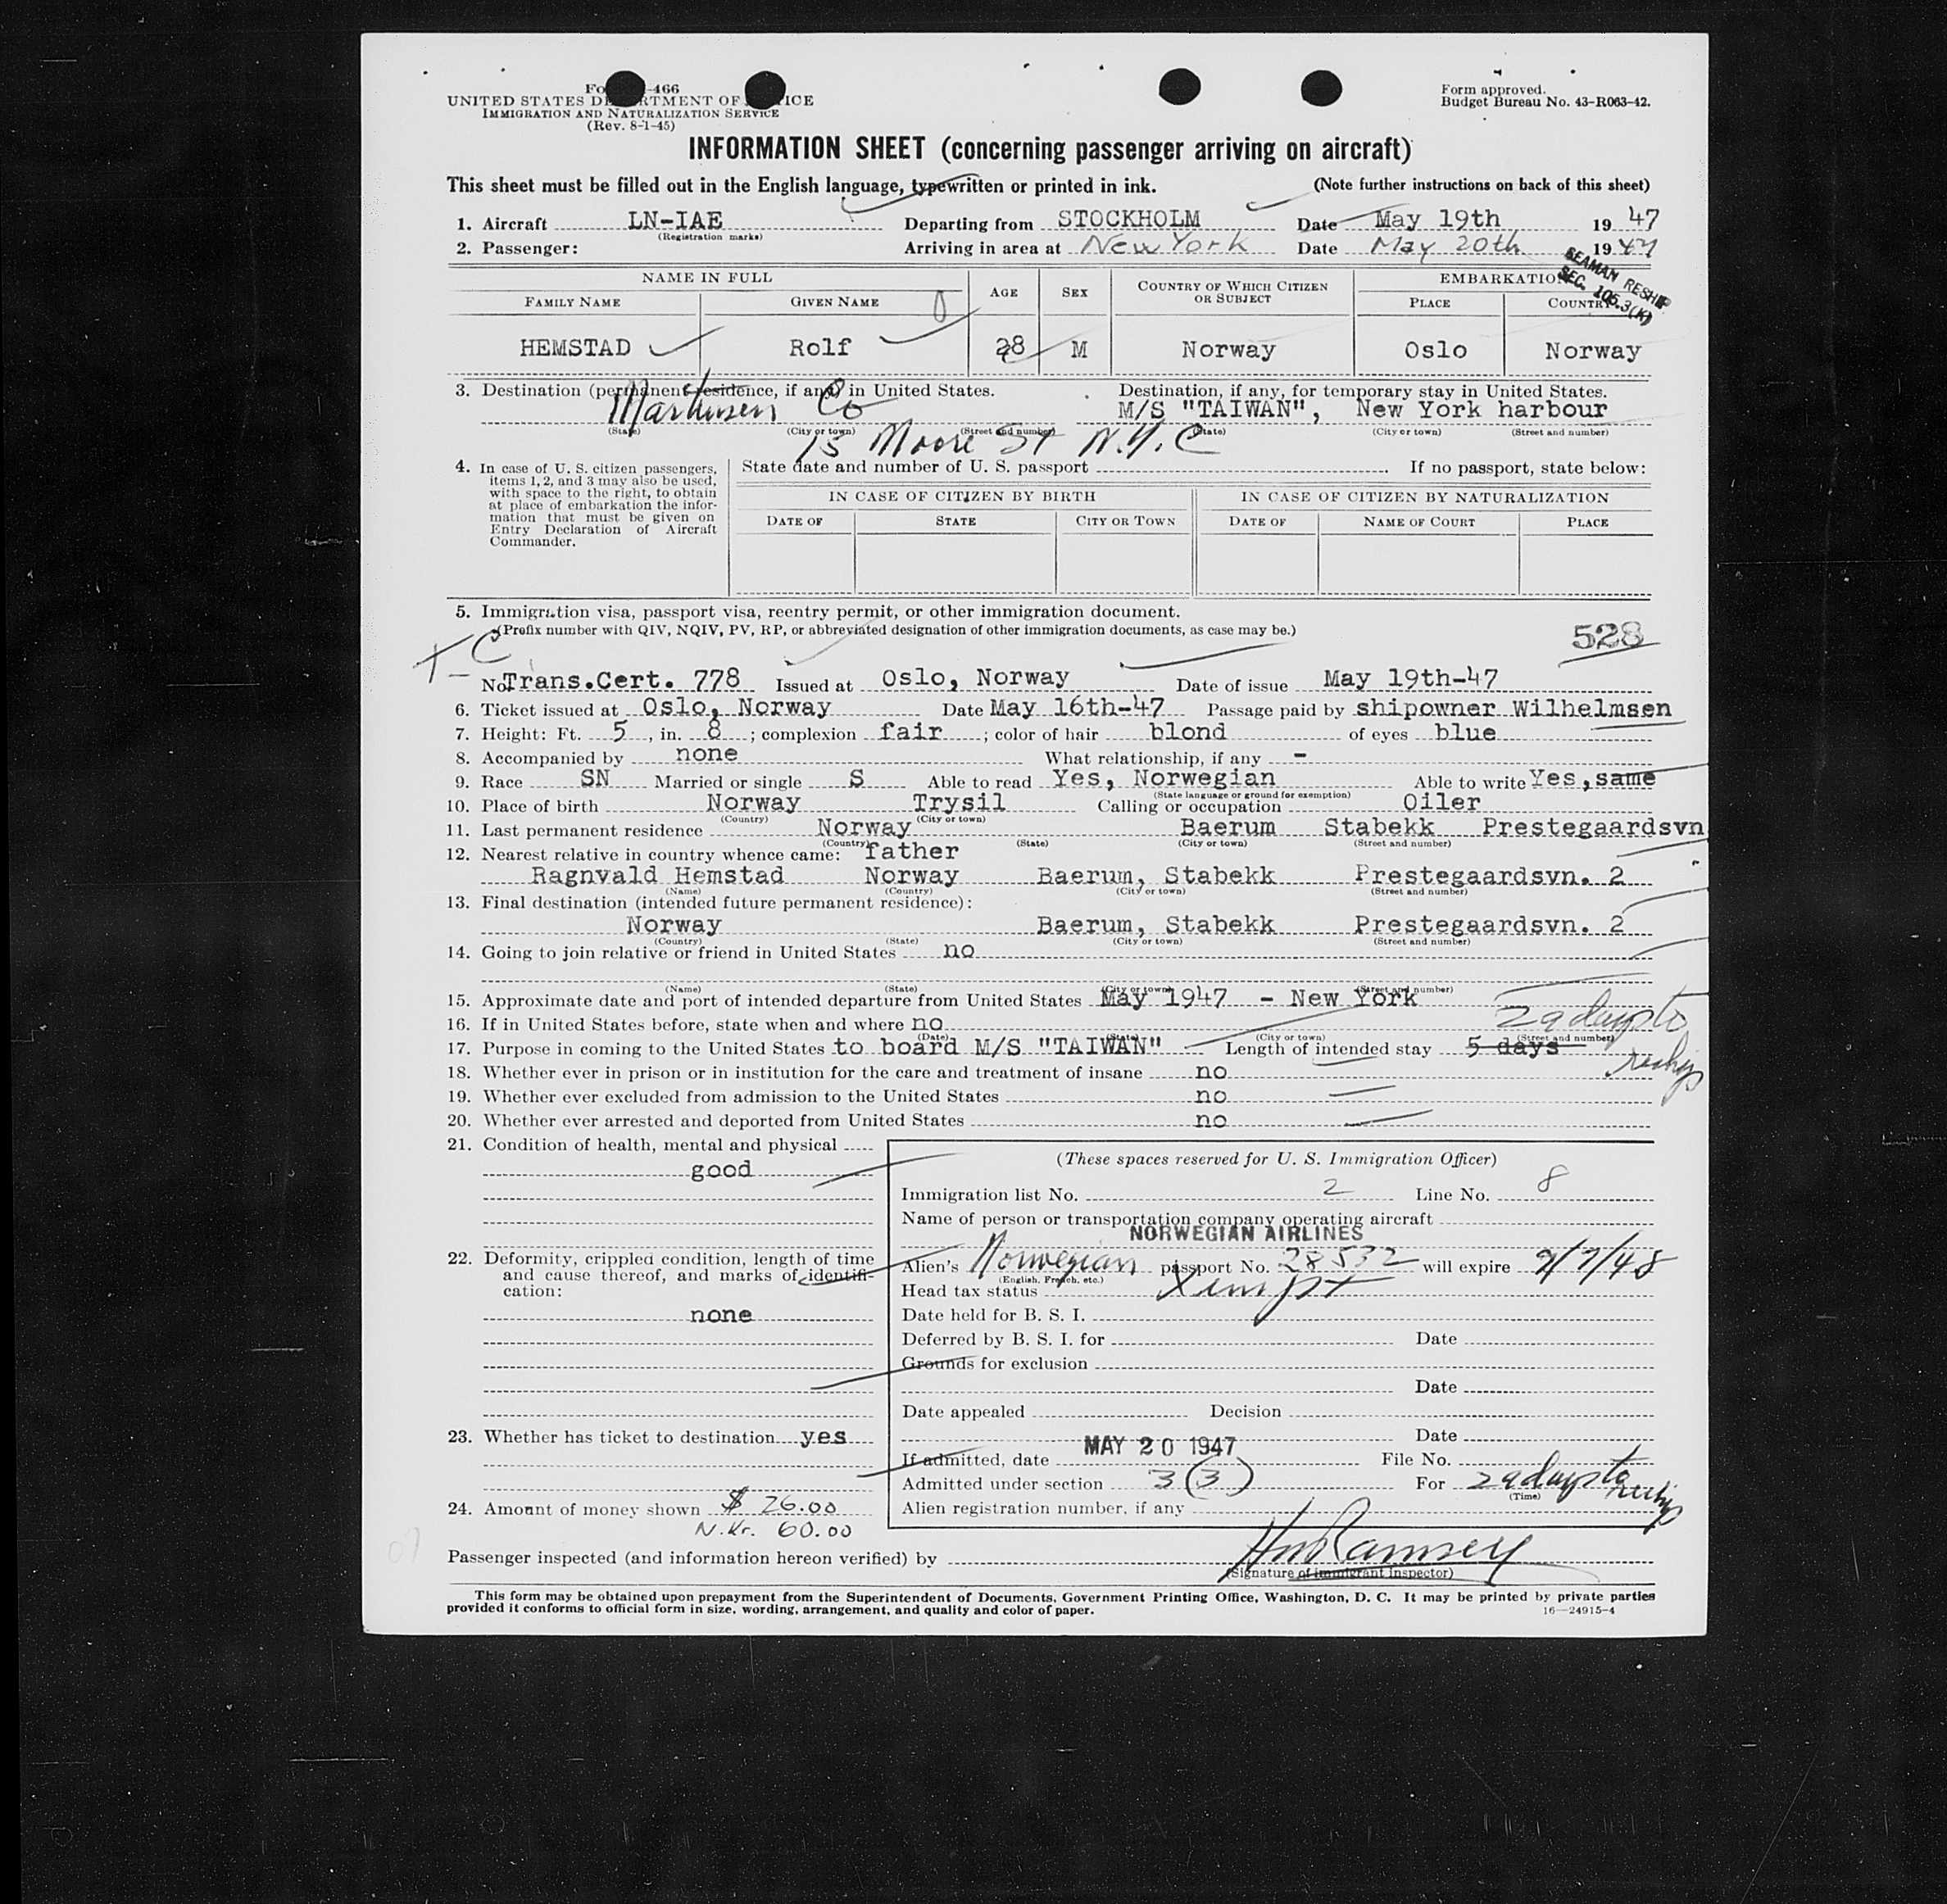 Form approved.
Budget Bureau No. 43-R063-42.
UNITED STATES DEPARTMENT OF JUSTICE
IMMIGRATION AND NATURALIZATION SERVICE
(Rev. 8-1-45)
INFORMATION SHEET (concerning passenger arriving on aircraft)
This sheet must be filled out in the English language, typewritten or printed in ink. (Note further instructions on back of this sheet)
1. Aircraft LN-IAE Departing from STOCKHOLM Date May 19th 19 47
(Registration marks)
2. Passenger: Arriving in area at New York Date May 20th 19 47
SEAMAN RESHIP
SEC. 105.3(K)
NAME IN FULL AGE SEX COUNTRY OF WHICH CITIZEN OR SUBJECT EMBARKATION
FAMILY NAME GIVEN NAME PLACE COUNTRY
HEMSTAD Rolf 28 M Norway Oslo Norway
3. Destination (permanent residence, if any) in United States. Destination, if any, for temporary stay in United States.
Co M/S "TAIWAN", New York harbour
(State) (City or town) (Street and number) (State) (City or town) (Street and number)
Moore St N.Y.C
4. In case of U. S. citizen passengers, items 1, 2, and 3 may also be used, with space to the right, to obtain at place of embarkation the information that must be given on Entry Declaration of Aircraft Commander.
State date and number of U. S. passport If no passport, state below:
IN CASE OF CITIZEN BY BIRTH IN CASE OF CITIZEN BY NATURALIZATION
DATE OF STATE CITY OR TOWN DATE OF NAME OF COURT PLACE
5. Immigration visa, passport visa, reentry permit, or other immigration document.
(Prefix number with QIV, NQIV, PV, RP, or abbreviated designation of other immigration documents, as case may be.)
528
T C
No. Trans.Cert. 778 Issued at Oslo, Norway Date of issue May 19th-47
6. Ticket issued at Oslo, Norway Date May 16th-47 Passage paid by shipowner Wilhelmsen
7. Height: Ft. 5, in. 8; complexion fair; color of hair blond of eyes blue
8. Accompanied by none What relationship, if any -
9. Race SN Married or single S Able to read Yes, Norwegian Able to write Yes, same
(State language or ground for exemption)
10. Place of birth Norway Trysil Calling or occupation Oiler
(Country) (City or town)
11. Last permanent residence Norway Baerum Stabekk Prestegaardsvn
(Country) (State) (City or town) (Street and number)
12. Nearest relative in country whence came: father
Ragnvald Hemstad Norway Baerum, Stabekk Prestegaardsvn. 2
(Name) (Country) (City or town) (Street and number)
13. Final destination (intended future permanent residence):
Norway Baerum, Stabekk Prestegaardsvn. 2
(Country) (State) (City or town) (Street and number)
14. Going to join relative or friend in United States no
(Name) (State) (City or town) (Street and number)
15. Approximate date and port of intended departure from United States May 1947 - New York
16. If in United States before, state when and where no
(Date) (State) (City or town) (Street and number)
29 days to
reship
17. Purpose in coming to the United States to board M/S "TAIWAN" Length of intended stay 5 days
18. Whether ever in prison or in institution for the care and treatment of insane no
19. Whether ever excluded from admission to the United States no
20. Whether ever arrested and deported from United States no
21. Condition of health, mental and physical
good
22. Deformity, crippled condition, length of time and cause thereof, and marks of identification:
none
23. Whether has ticket to destination yes
24. Amount of money shown $ 26.00
N.Kr. 60.00
(These spaces reserved for U. S. Immigration Officer)
Immigration list No. 2 Line No. 8
Name of person or transportation company operating aircraft
NORWEGIAN AIRLINES
Alien's Norwegian passport No. 28532 will expire 9/7/48
(English, French, etc.)
Head tax status Xempt
Date held for B. S. I.
Deferred by B. S. I. for Date
Grounds for exclusion
Date
Date appealed Decision
Date
If admitted, date MAY 20 1947 File No.
Admitted under section 3(3) For 29 days to reship
(Time)
Alien registration number, if any
Passenger inspected (and information hereon verified) by Ramsey
(Signature of immigrant inspector)
This form may be obtained upon prepayment from the Superintendent of Documents, Government Printing Office, Washington, D. C. It may be printed by private parties
provided it conforms to official form in size, wording, arrangement, and quality and color of paper.
16—24915-4